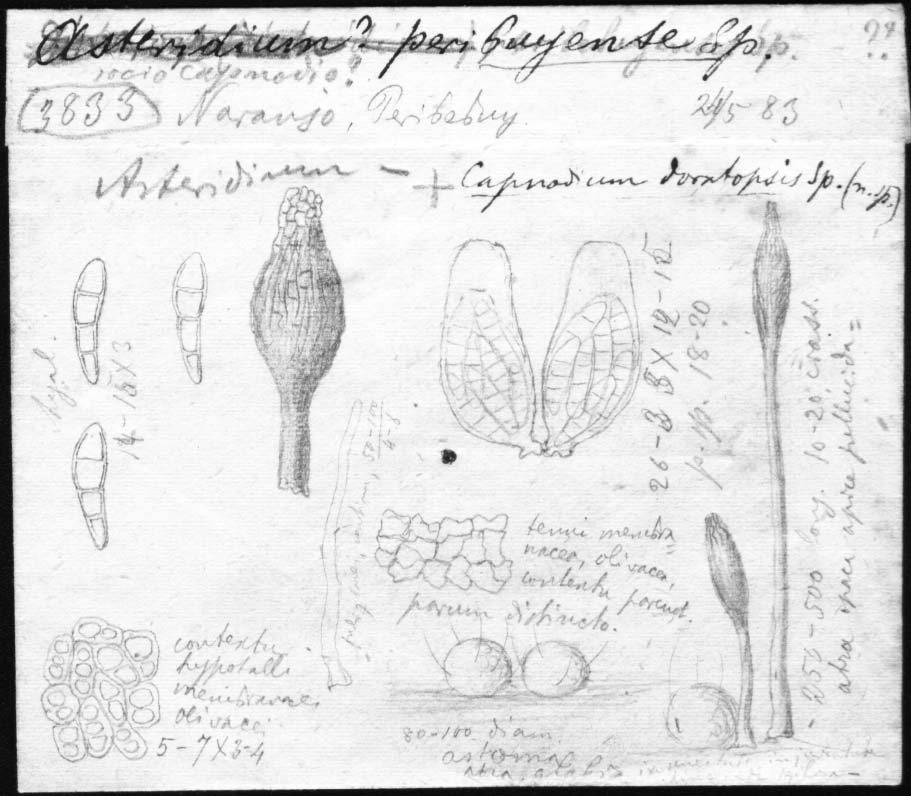 Asteridium? peribuyense Sp. ??
socio Capnodio?
3833 Naranjo, Peribebuy 24/5 83
Asteridium —
+ Capnodium doratopsis Sp. (n. sp.)
hyal.
14-15 X 3
26-28 X 12-15
p. sp. 18-20
50-100
4-8
250-500 long. 10-20 crass.
atra opaca apice pellucida=
tenui membra=
nacea, olivacea,
contextu parench.
parum distincto.
contextu
hypothalli
membranacei
olivacei
5-7 X 3-4
80-100 diam
astoma
atra, glabra